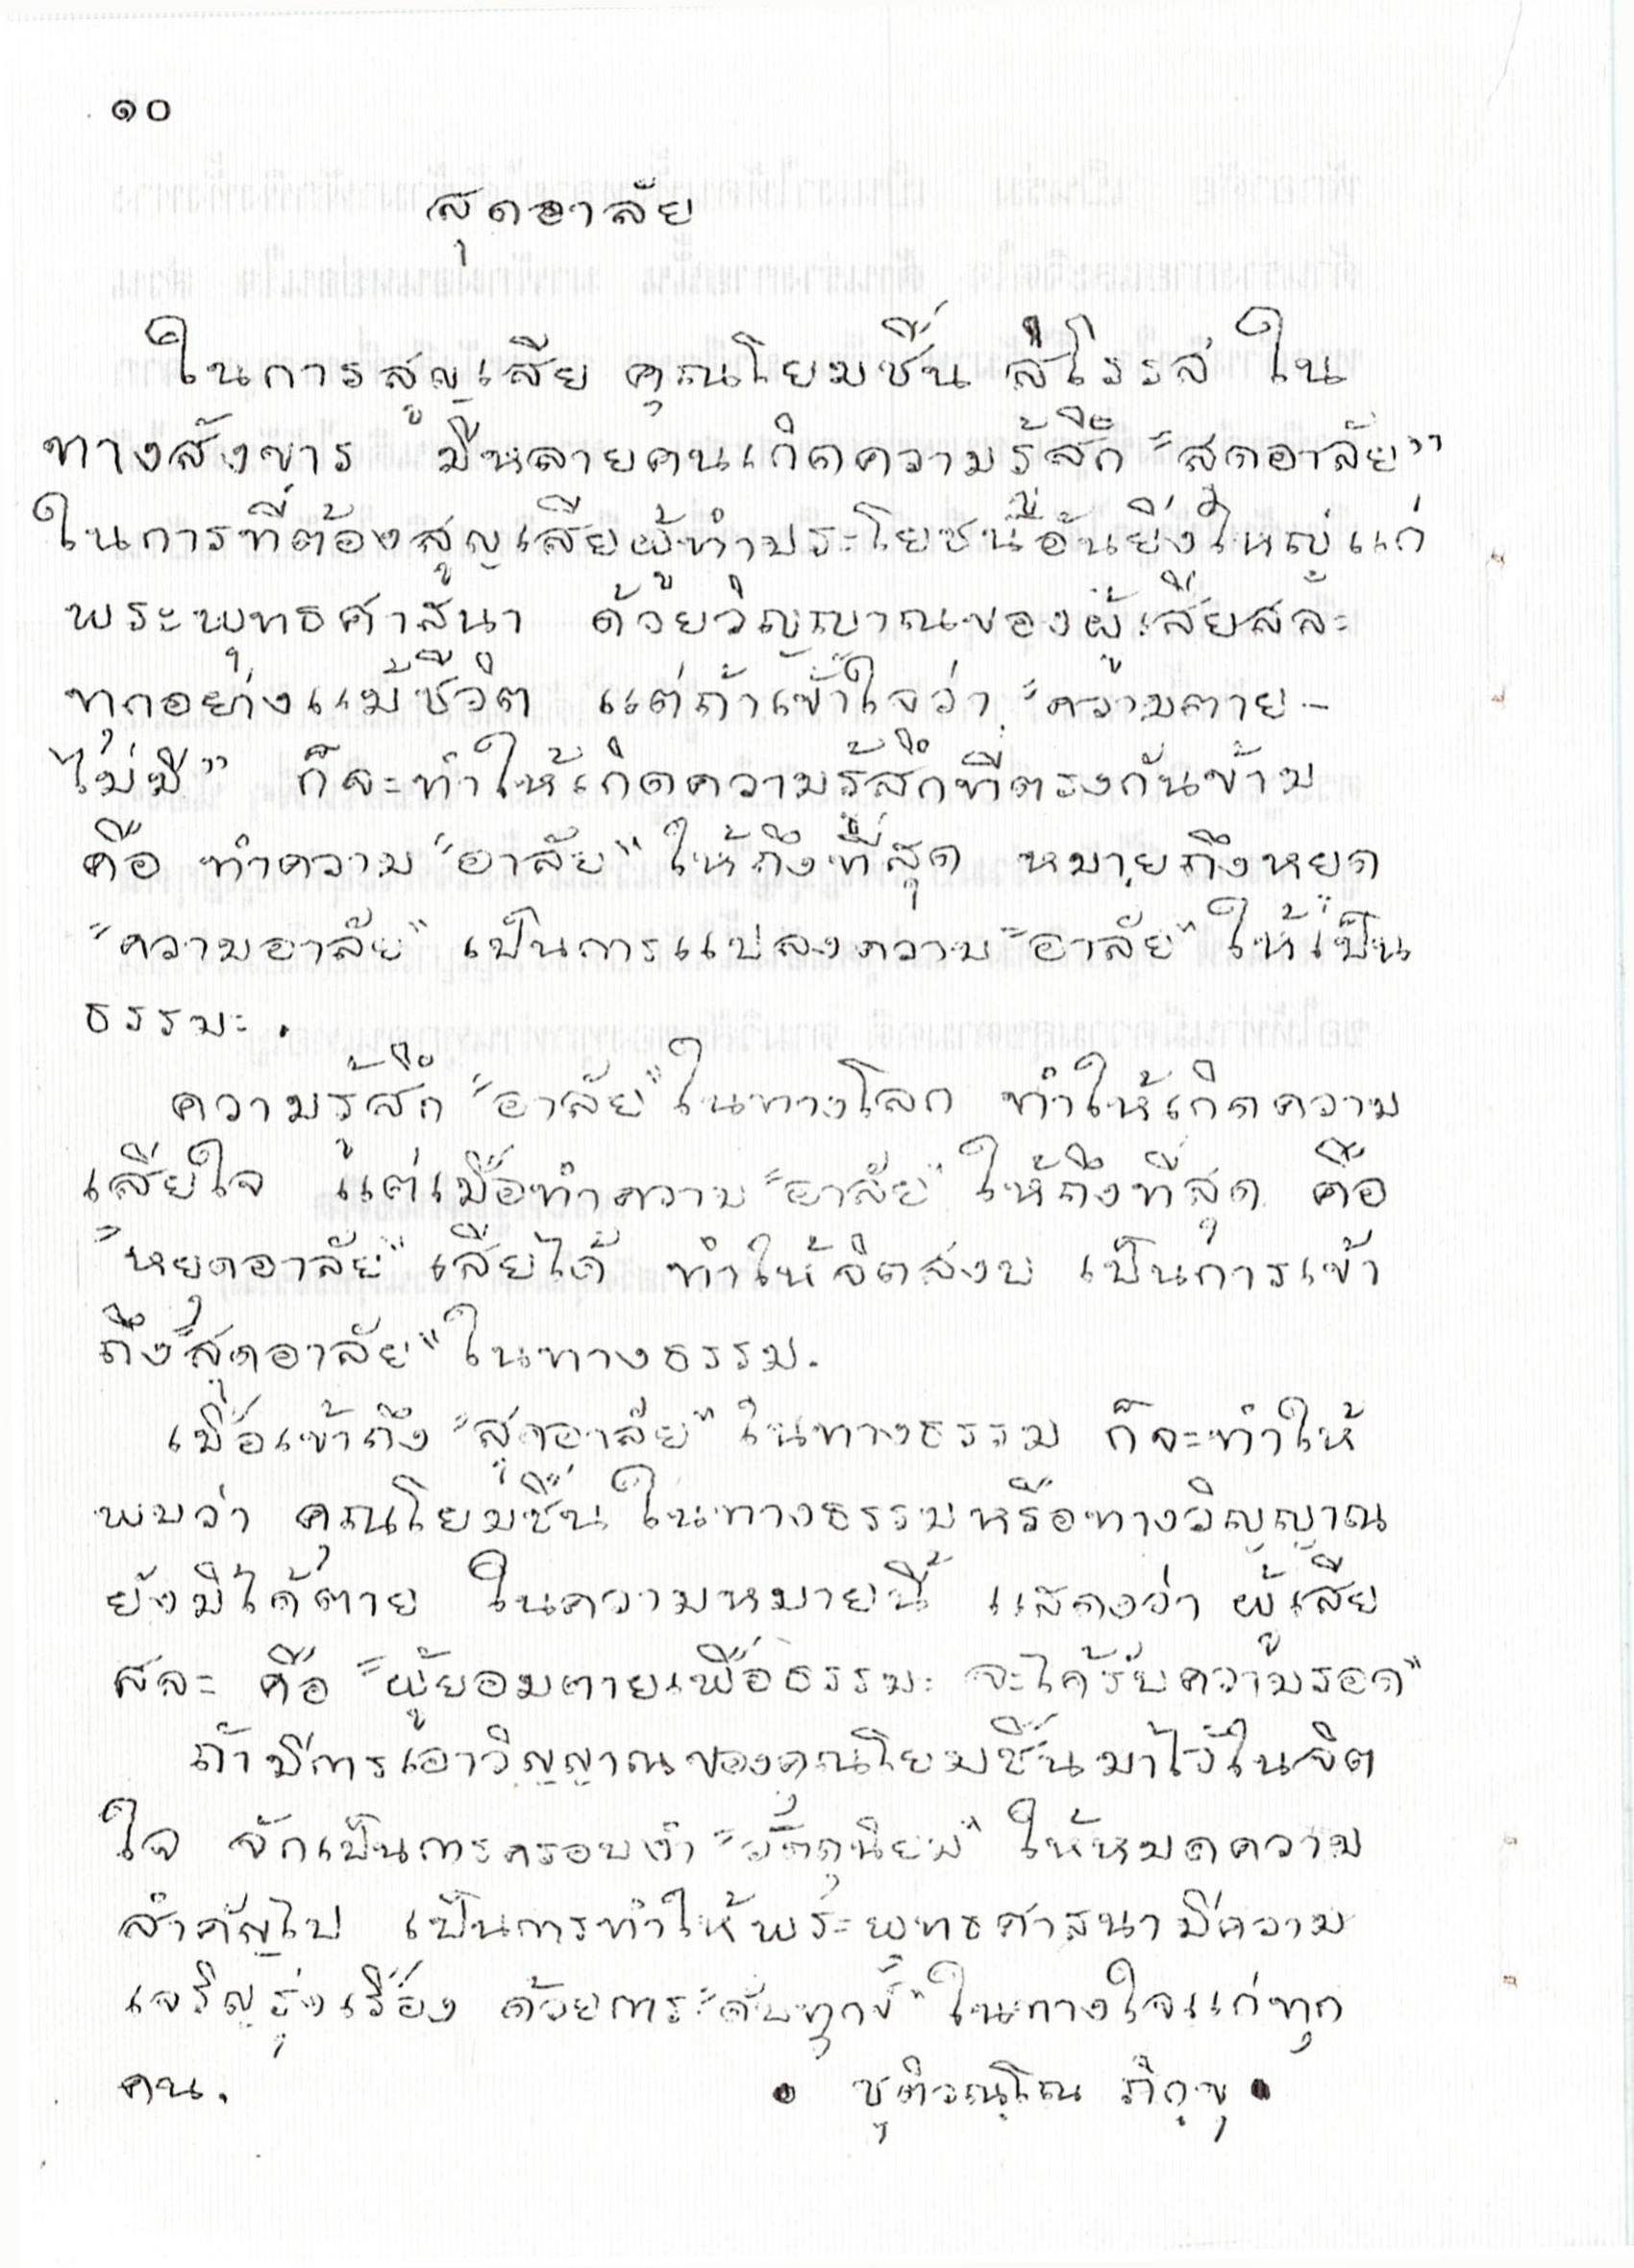 ๑๐
สุดอาลัย
ในการสูญเสีย คุณโยมชื่น สิโรรส ใน
ทางสังขาร มีหลายคนเกิดความรู้สึก "สุดอาลัย"
ในการที่ต้องสูญเสียผู้ทำประโยชน์อันยิ่งใหญ่แก่
พระพุทธศาสนา ด้วยวิญญาณของผู้เสียสละ
ทุกอย่างแม้ชีวิต แต่ถ้าเข้าใจว่า "ความตาย-
ไม่มี" ก็จะทำให้เกิดความรู้สึกที่ตรงกันข้าม
คือ ทำความ "อาลัย" ให้ถึงที่สุด หมายถึงหยุด
"ความอาลัย" เป็นการแปลงความ "อาลัย" ให้เป็น
ธรรมะ.
ความรู้สึก "อาลัย" ในทางโลก ทำให้เกิดความ
เสียใจ แต่เมื่อทำความ "อาลัย" ให้ถึงที่สุด คือ
"หยุดอาลัย" เสียได้ ทำให้จิตสงบ เป็นการเข้า
ถึง "สุดอาลัย" ในทางธรรม.
เมื่อเข้าถึง "สุดอาลัย" ในทางธรรม ก็จะทำให้
พบว่า คุณโยมชื่น ในทางธรรมหรือทางวิญญาณ
ยังมิได้ตาย ในความหมายนี้ แสดงว่า ผู้เสีย
สละ คือ "ผู้ยอมตายเพื่อธรรมะ จะได้รับความรอด"
ถ้ามีการเอาวิญญาณของคุณโยมชื่นมาไว้ในจิต
ใจ จักเป็นการครอบงำ "วัตถุนิยม" ให้หมดความ
สำคัญไป เป็นการทำให้พระพุทธศาสนามีความ
เจริญรุ่งเรือง ด้วยการ "ดับทุกข์" ในทางใจแก่ทุก
คน.
• ชุติวณฺโณ ภิกฺขุ •